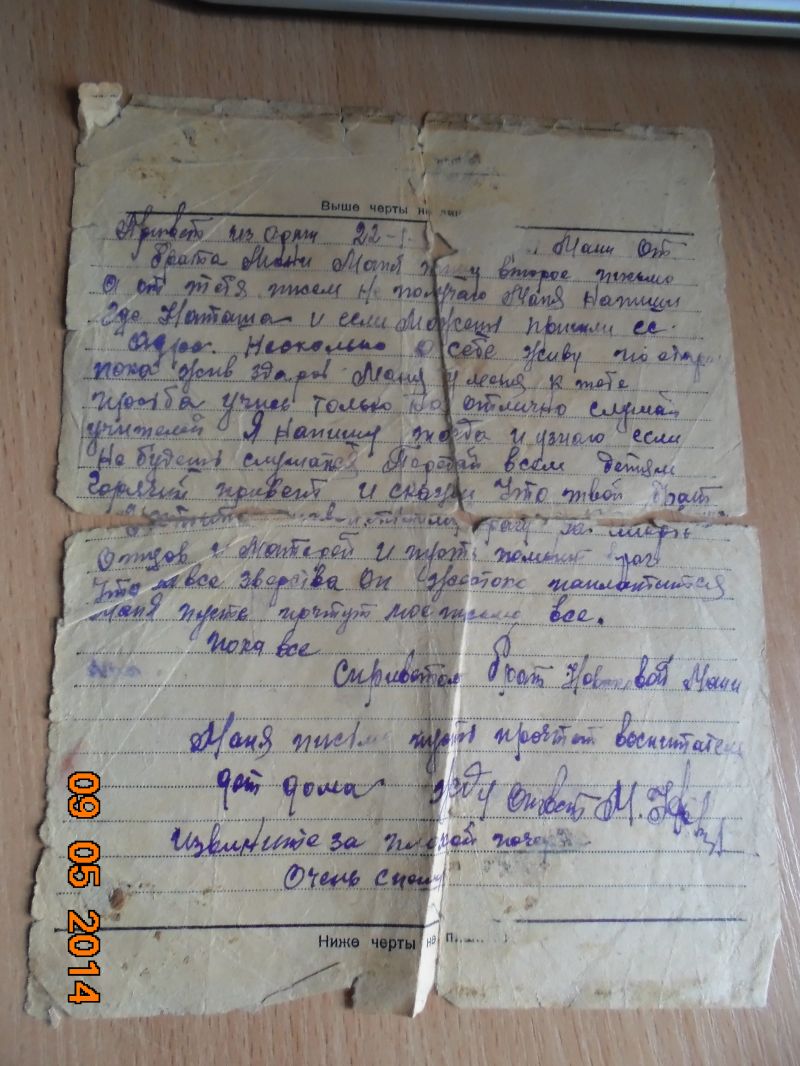 Выше черты не
Привет из 22- Мани От
брата Мани Маня пишу второе письмо
а от тебя писем не получаю Маня напиши
Где Наташа и если Можеш пришли ее
адрес. Несколько о себе живу по
пока жив здаров Маня у меня к тебе
просьба учись только на отлично слушай
учителей Я напишу и узнаю если
не будешь слушатся Передай всем детям
Горячий привет и скажи Что твой брат
врагу за
отцов и Матерей и пусть помнит враг
Что за все зверства он жестоко паплатится
Маня пусть прочтут мое письмо все.
пока все
С приветом брат Мани
Маня письмо пусть прочтет
дет дома жду ответ М.
Извените за плохой
Очень
Ниже черты не
09 05 2014